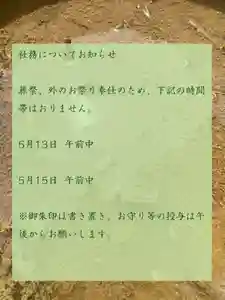 社務についてお知らせ
葬祭、外のお祭り奉仕のため、下記の時間
帯はおりません。
5月13日 午前中
5月15日 午前中
※御朱印は書き置き、お守り等の授与は午
後からお願いします。